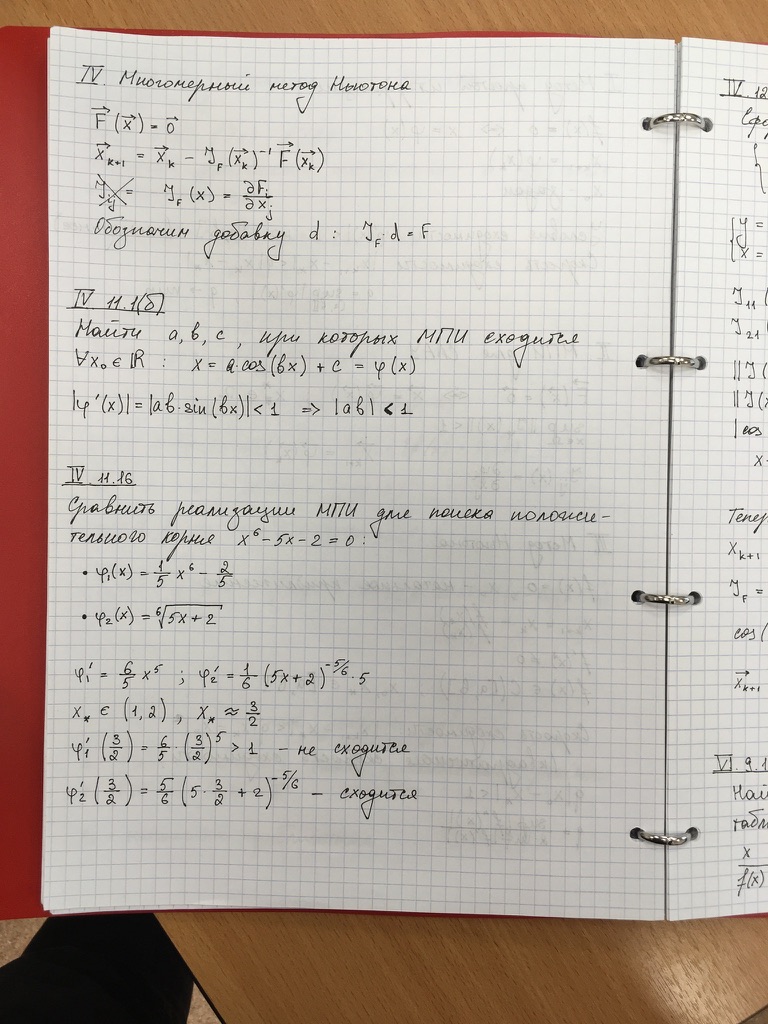 IV. Многомерный метод Ньютона
F⃗(x⃗) = 0⃗
x⃗ₖ₊₁ = x⃗ₖ - J_F(x⃗ₖ)⁻¹ F⃗(x⃗ₖ)
J_F(x) = ∂Fᵢ/∂xⱼ
Обозначим добавку d : J_F · d = F
IV 11.1(б)
Найти a, b, c, при которых МПИ сходится
∀x₀ ∈ ℝ : x = a·cos(bx) + c = φ(x)
|φ'(x)| = |ab·sin(bx)| < 1 => |ab| < 1
IV 11.16
Сравнить реализации МПИ для поиска положи-
тельного корня x⁶ - 5x - 2 = 0 :
• φ₁(x) = 1/5 x⁶ - 2/5
• φ₂(x) = ⁶√(5x + 2)
φ₁' = 6/5 x⁵ ; φ₂' = 1/6 (5x + 2)^(-5/6) · 5
x* ∈ (1, 2) , x* ≈ 3/2
φ₁'(3/2) = 6/5 · (3/2)⁵ > 1 - не сходится
φ₂'(3/2) = 5/6 (5 · 3/2 + 2)^(-5/6) - сходится
IV. 12
{
{ y =
x =
J₁₁ (
J₂₁ (
||J(
||J(x
|cos
x
Тепер
xₖ₊₁
J_F =
cos(
x⃗ₖ₊₁
VI. 9.1
Най
табли
x
f(x)